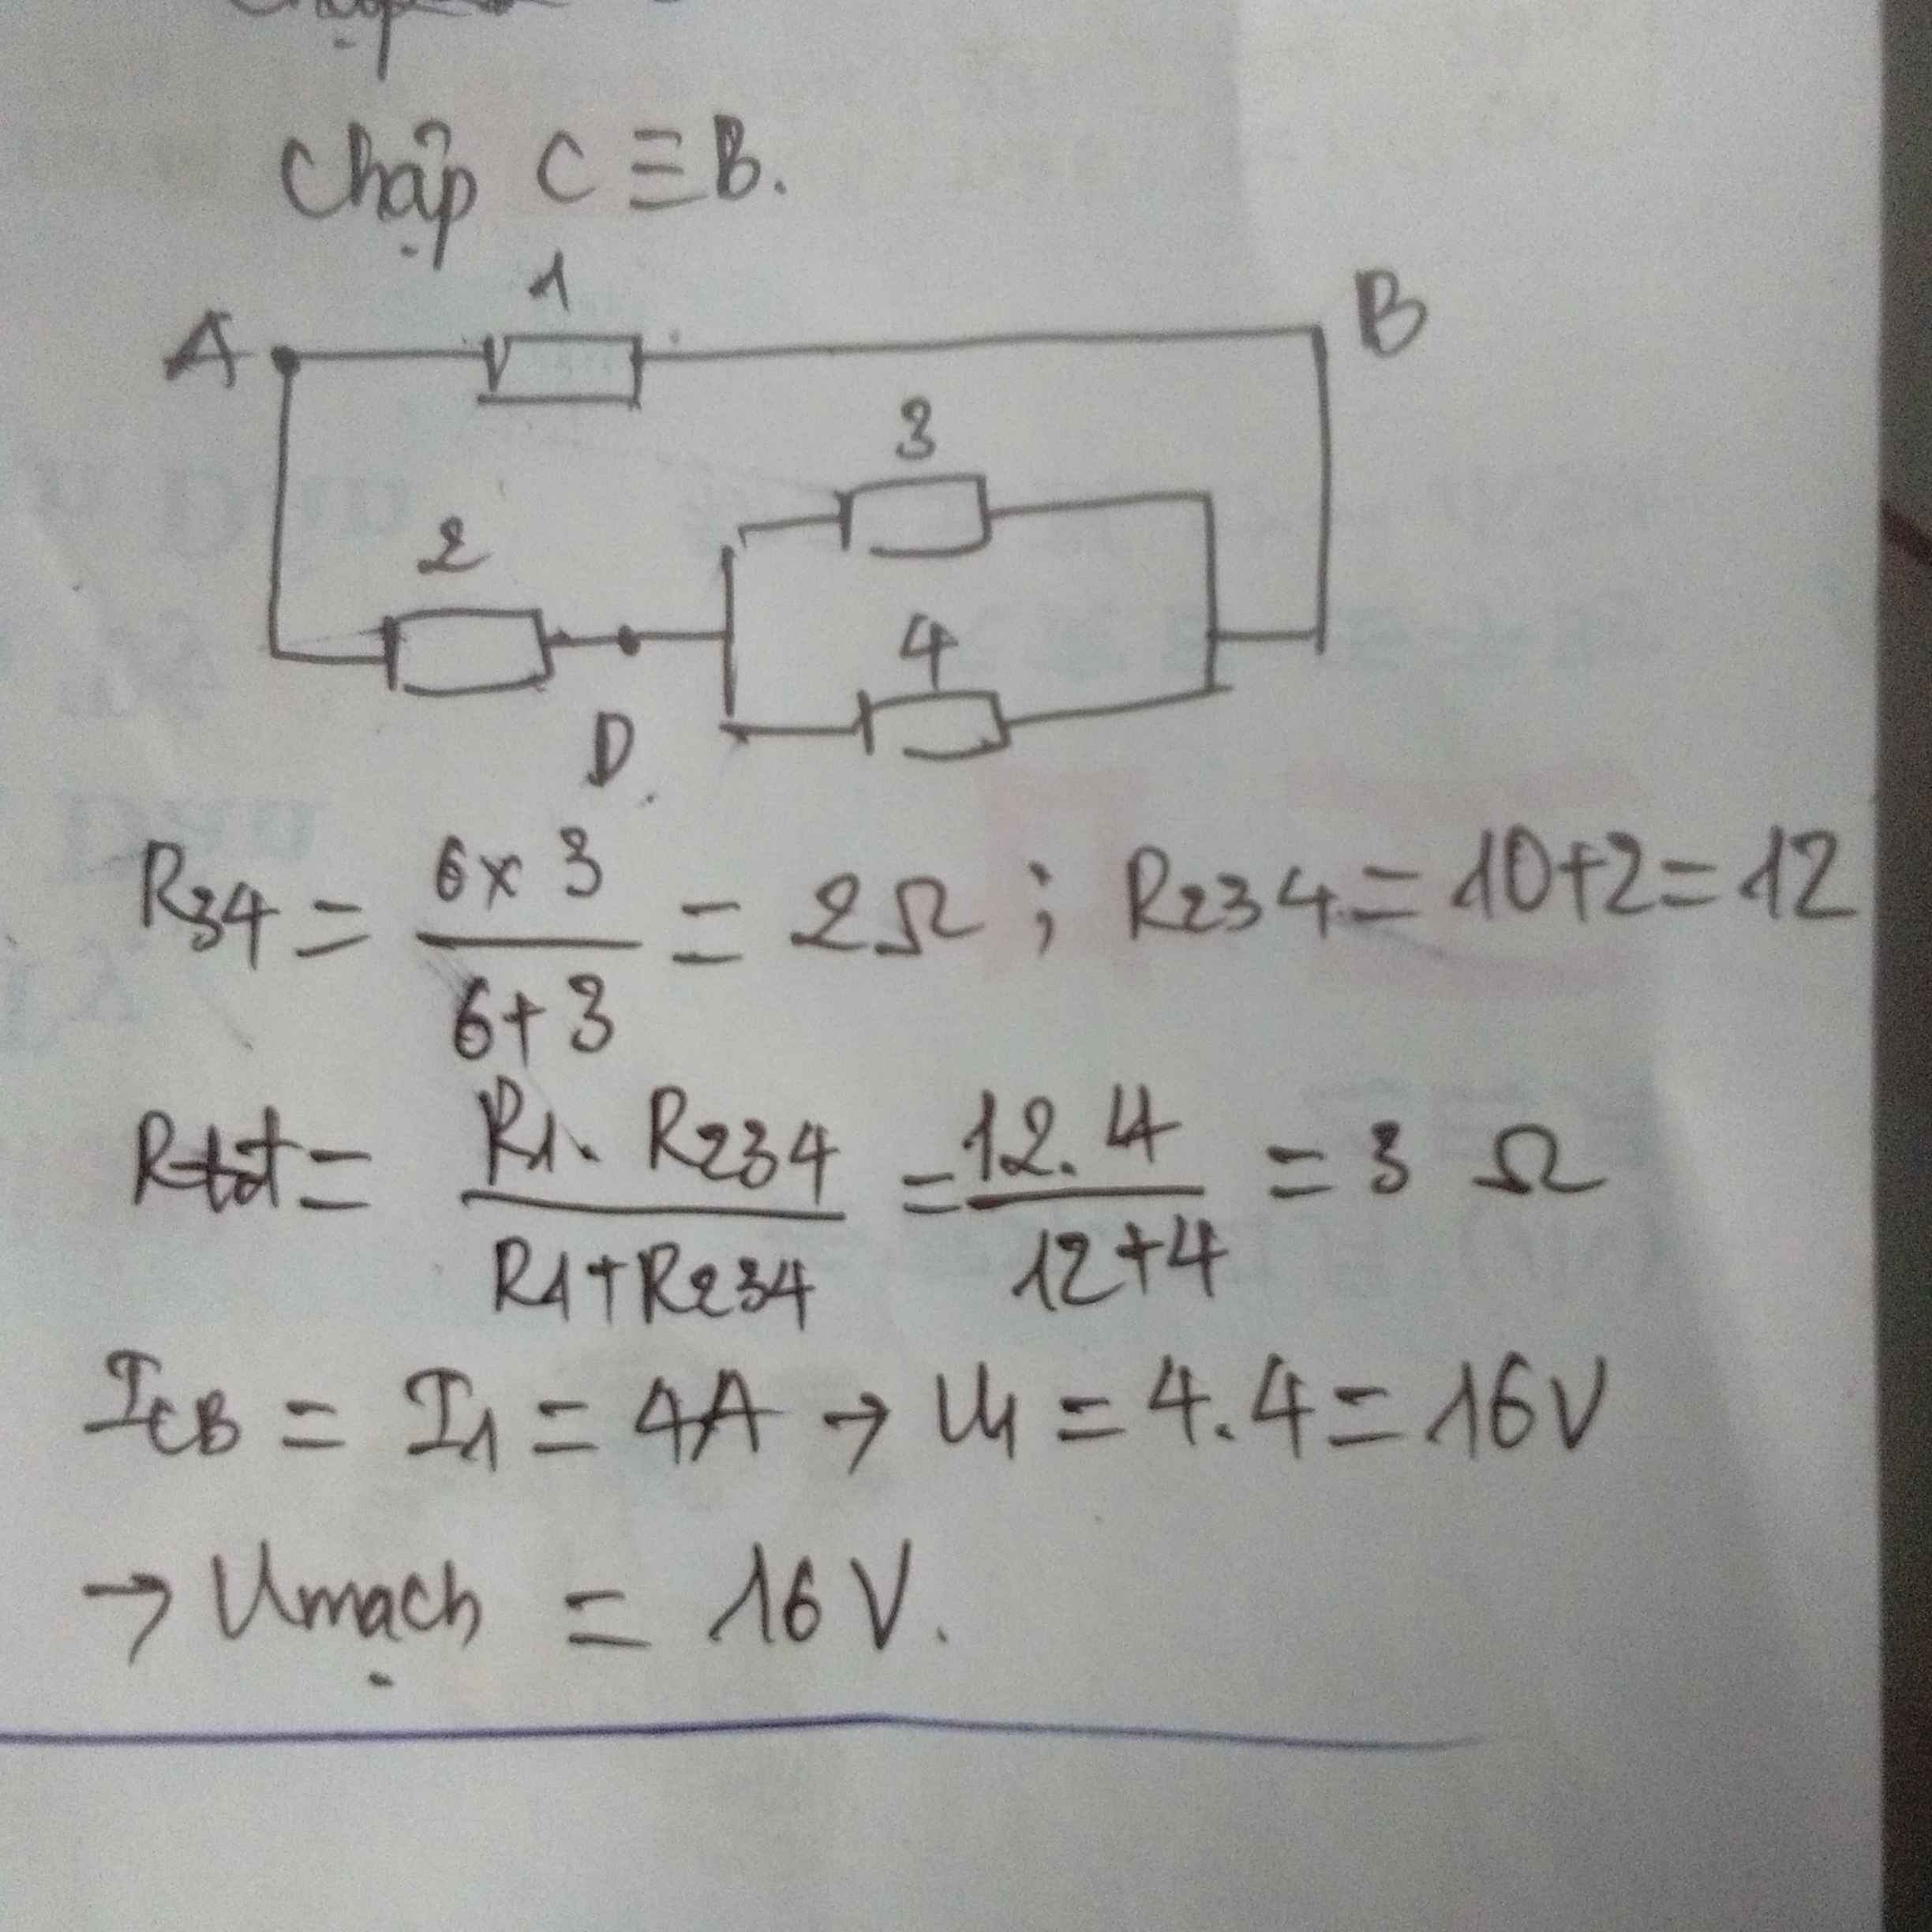 Chập C ≡ B.
1
A
B
3
2
4
D
R34 = 6x3 / 6+3 = 2Ω ; R234 = 10+2 = 12
Rtot = R1. R234 / R1+R234 = 12.4 / 12+4 = 3 Ω
ICB = I1 = 4A → U1 = 4.4 = 16V
→ Umạch = 16V.